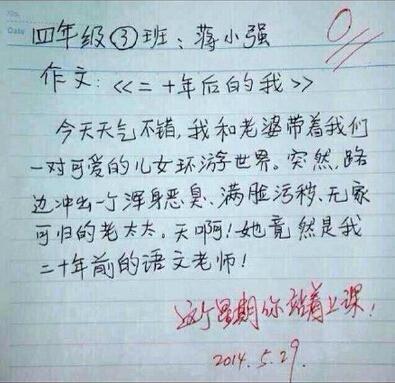 0
四年级③班：蒋小强
作文：《二十年后的我》
今天天气不错，我和老婆带着我们
一对可爱的儿女环游世界。突然，路
边冲出一个浑身恶臭、满脸污秽、无家
可归的老太太。天啊！她竟然是我
二十年前的语文老师！
这个星期你站着上课！
2014.5.29.